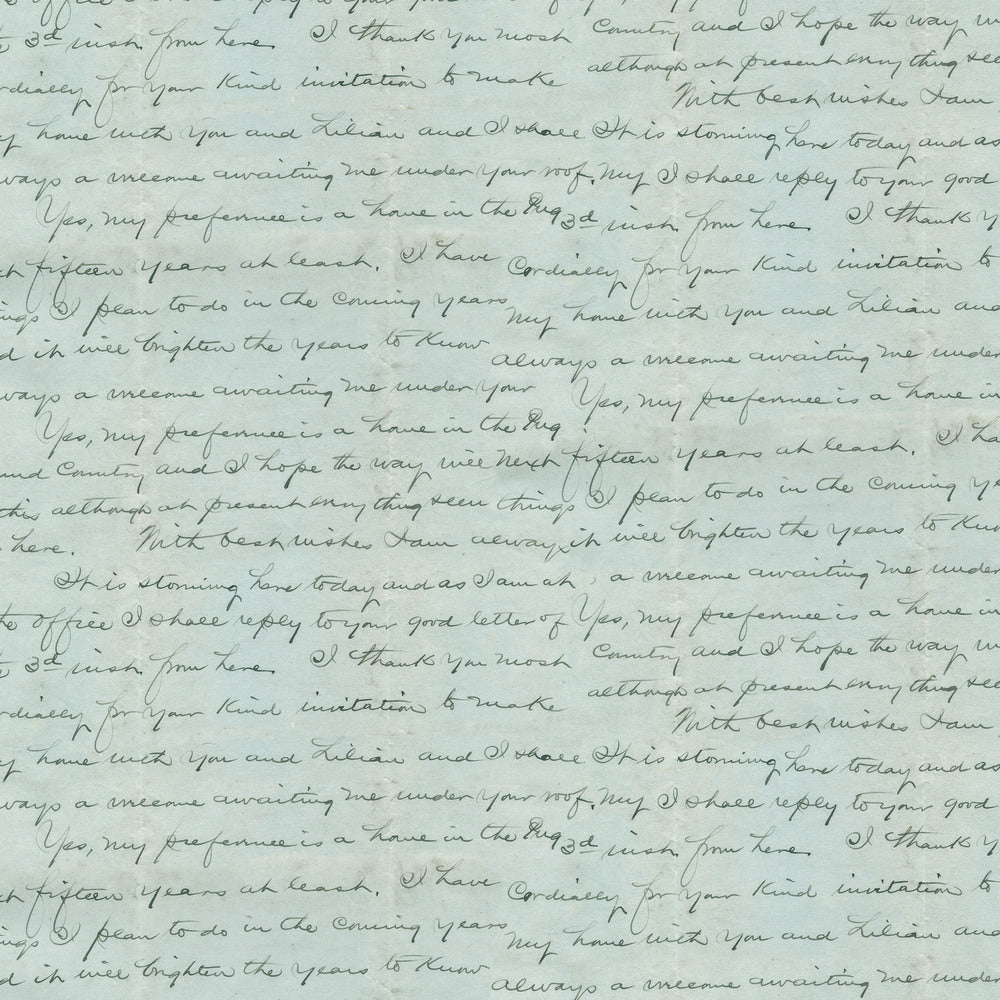 3d inst from here I thank you most
cordially for your kind invitation to make
my home with you and Lilian and I shall
always a welcome awaiting me under your roof.
Yes, my preference is a home in the Pug
fifteen years at least. I have
things I plan to do in the coming years
it will brighten the years to know
always a welcome awaiting me under your
Yes, my preference is a home in the Pug
and Country and I hope the way will
this although at present everything seem
here. With best wishes I am always
It is storming here today and as I am at
the office I shall reply to your good letter of
3d inst from here I thank you most
cordially for your kind invitation to make
my home with you and Lilian and I shall
always a welcome awaiting me under your roof.
Yes, my preference is a home in the Pug
fifteen years at least. I have
things I plan to do in the coming years
it will brighten the years to know
Country and I hope the way
although at present everything see
With best wishes I am
It is storming here today and as
my I shall reply to your good
3d inst from here I thank y
Cordially for your kind invitation to
my home with you and Lilian and
always a welcome awaiting me under
Yes, my preference is a home in
next fifteen years at least. I ha
things I plan to do in the coming ye
it will brighten the years to know
a welcome awaiting me under
Yes, my preference is a home in
Country and I hope the way
although at present everything see
With best wishes I am
It is storming here today and as
my I shall reply to your good
3d inst from here I thank y
Cordially for your kind invitation to
my home with you and Lilian and
always a welcome awaiting me under